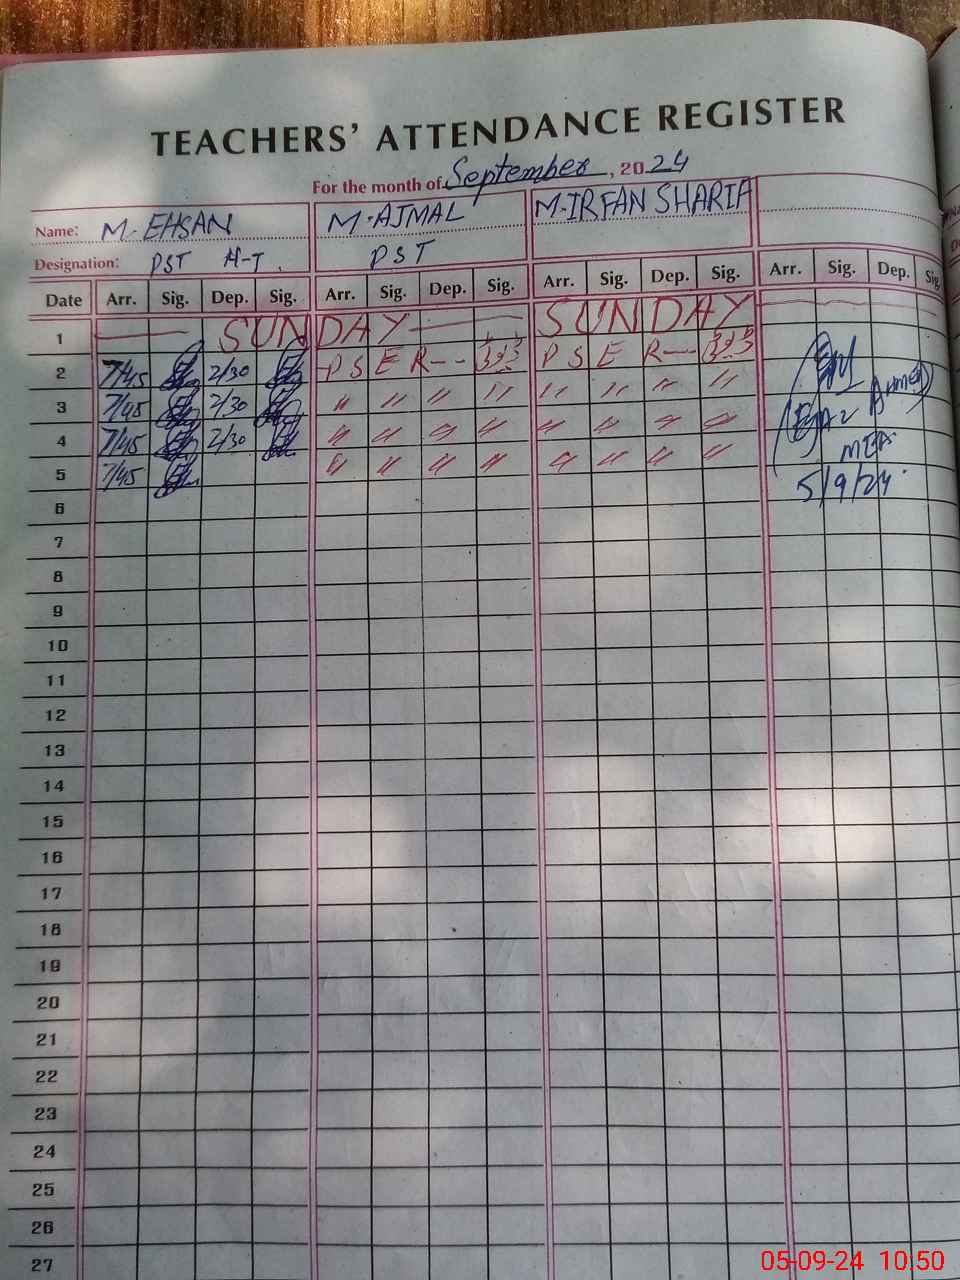 TEACHERS' ATTENDANCE REGISTER
For the month of September, 2024
Name: M. EHSAN M. AJMAL M. IRFAN SHARIF
Designation: PST H-T. PST
Date Arr. Sig. Dep. Sig. Arr. Sig. Dep. Sig. Arr. Sig. Dep. Sig. Arr. Sig. Dep. Sig
1 SUNDAY SUNDAY
2 7/45 2/30 P S E R P S E R
3 7/45 2/30 〃 〃 〃 〃 〃 〃 〃 〃
4 7/45 2/30 〃 〃 〃 〃 〃 〃 〃 〃
5 7/45 〃 〃 〃 〃 〃 〃 〃 〃
Ahmed
MEA
5/9/24
6
7
8
9
10
11
12
13
14
15
16
17
18
19
20
21
22
23
24
25
26
27
05-09-24 10:50